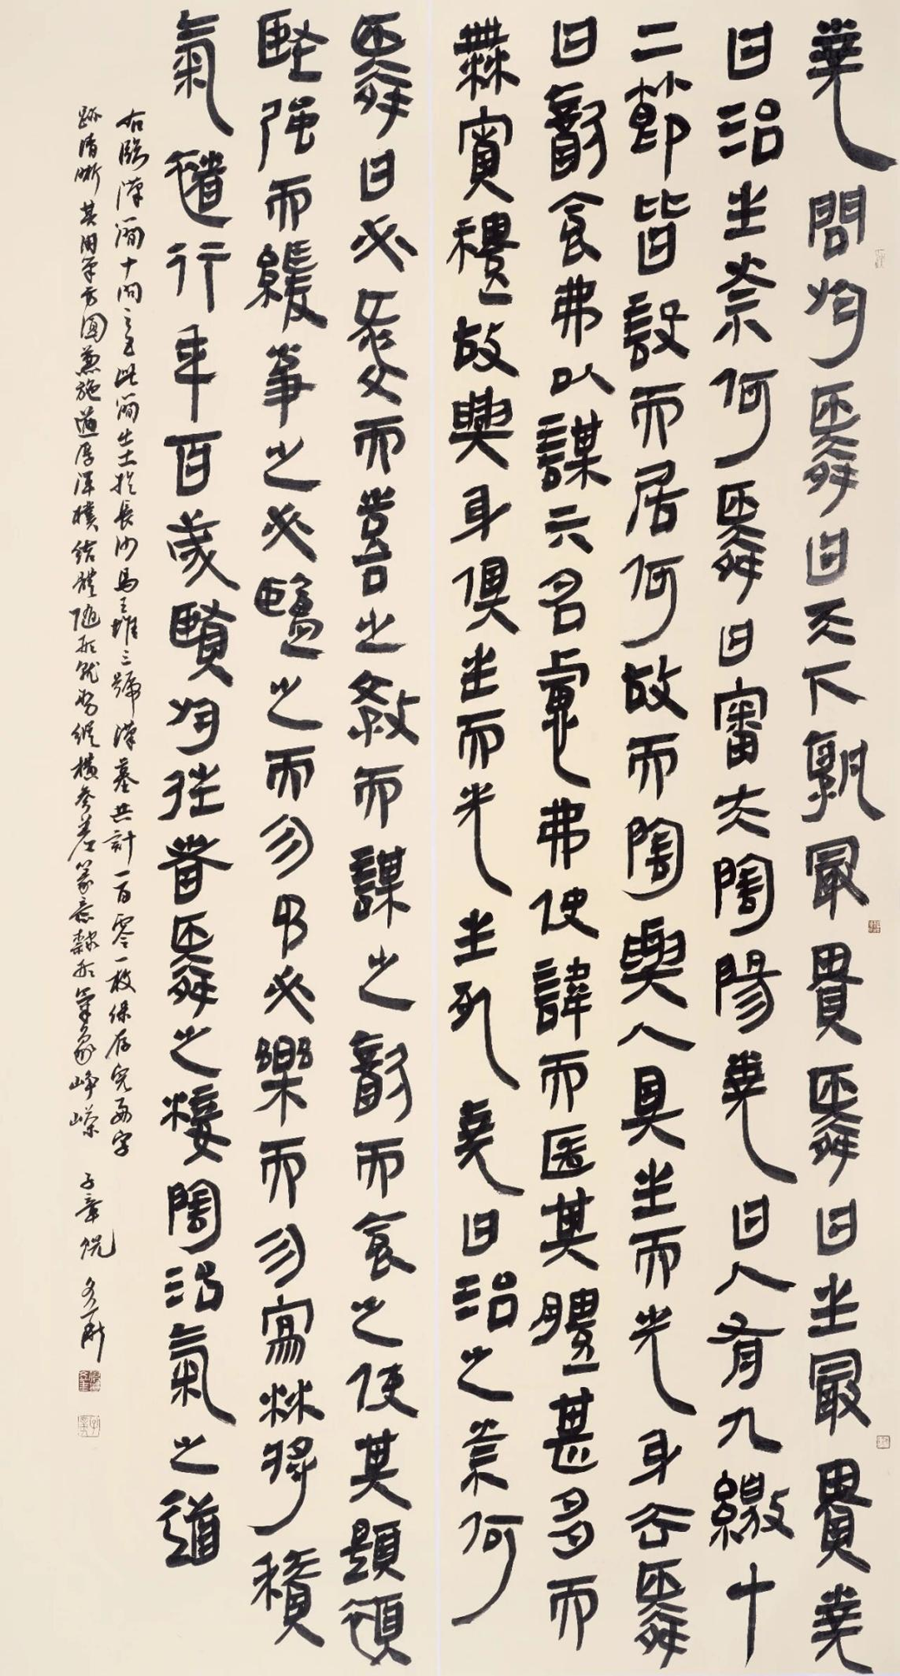 堯問於舜曰天下孰最貴舜曰生最貴堯
曰治生奈何舜曰審夫陰陽堯曰人有九繳十
二節皆設而居何故而陰與人具生而先身去舜
曰飲食弗以謀亓名慮弗使諱而匿其體甚多而
無寬禮故與身俱生而先生死堯曰治之奈何
舜曰必愛而喜之教而謀之飲而食之使其題頯
堅强而緩事之必鹽之而勿予必樂而勿寫材將積
氣行年百歲賢於往者舜之椄陰治氣之道
右臨漢簡十問之五此簡出土於長沙馬王堆三號漢墓共計一百零一枚保存完好字
跡清晰其用筆方圓兼施遒厚渾樸結體隨形就勢縱橫參差篆意隸形氣象崢嶸 子章倪